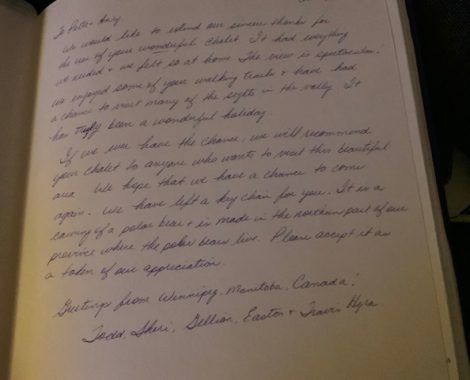 We would like to extend our sincere thanks for
the use of your wonderful chalet. It had everything
we needed & we felt so at home. The view is spectacular!
We enjoyed some of your walking trails & have had
a chance to visit many of the sights in the valley. It
has truly been a wonderful holiday.
If we ever have the chance, we will recommend
your chalet to anyone who wants to visit this beautiful
area. We hope that we have a chance to come
again. We have left a key chain for you. It is a
carving of a polar bear & is made in the northern part of our
province where the polar bears live. Please accept it as
a token of our appreciation.
Greetings from Winnipeg, Manitoba, Canada!
Todd, Sheri, Gillian, Easton & Travis